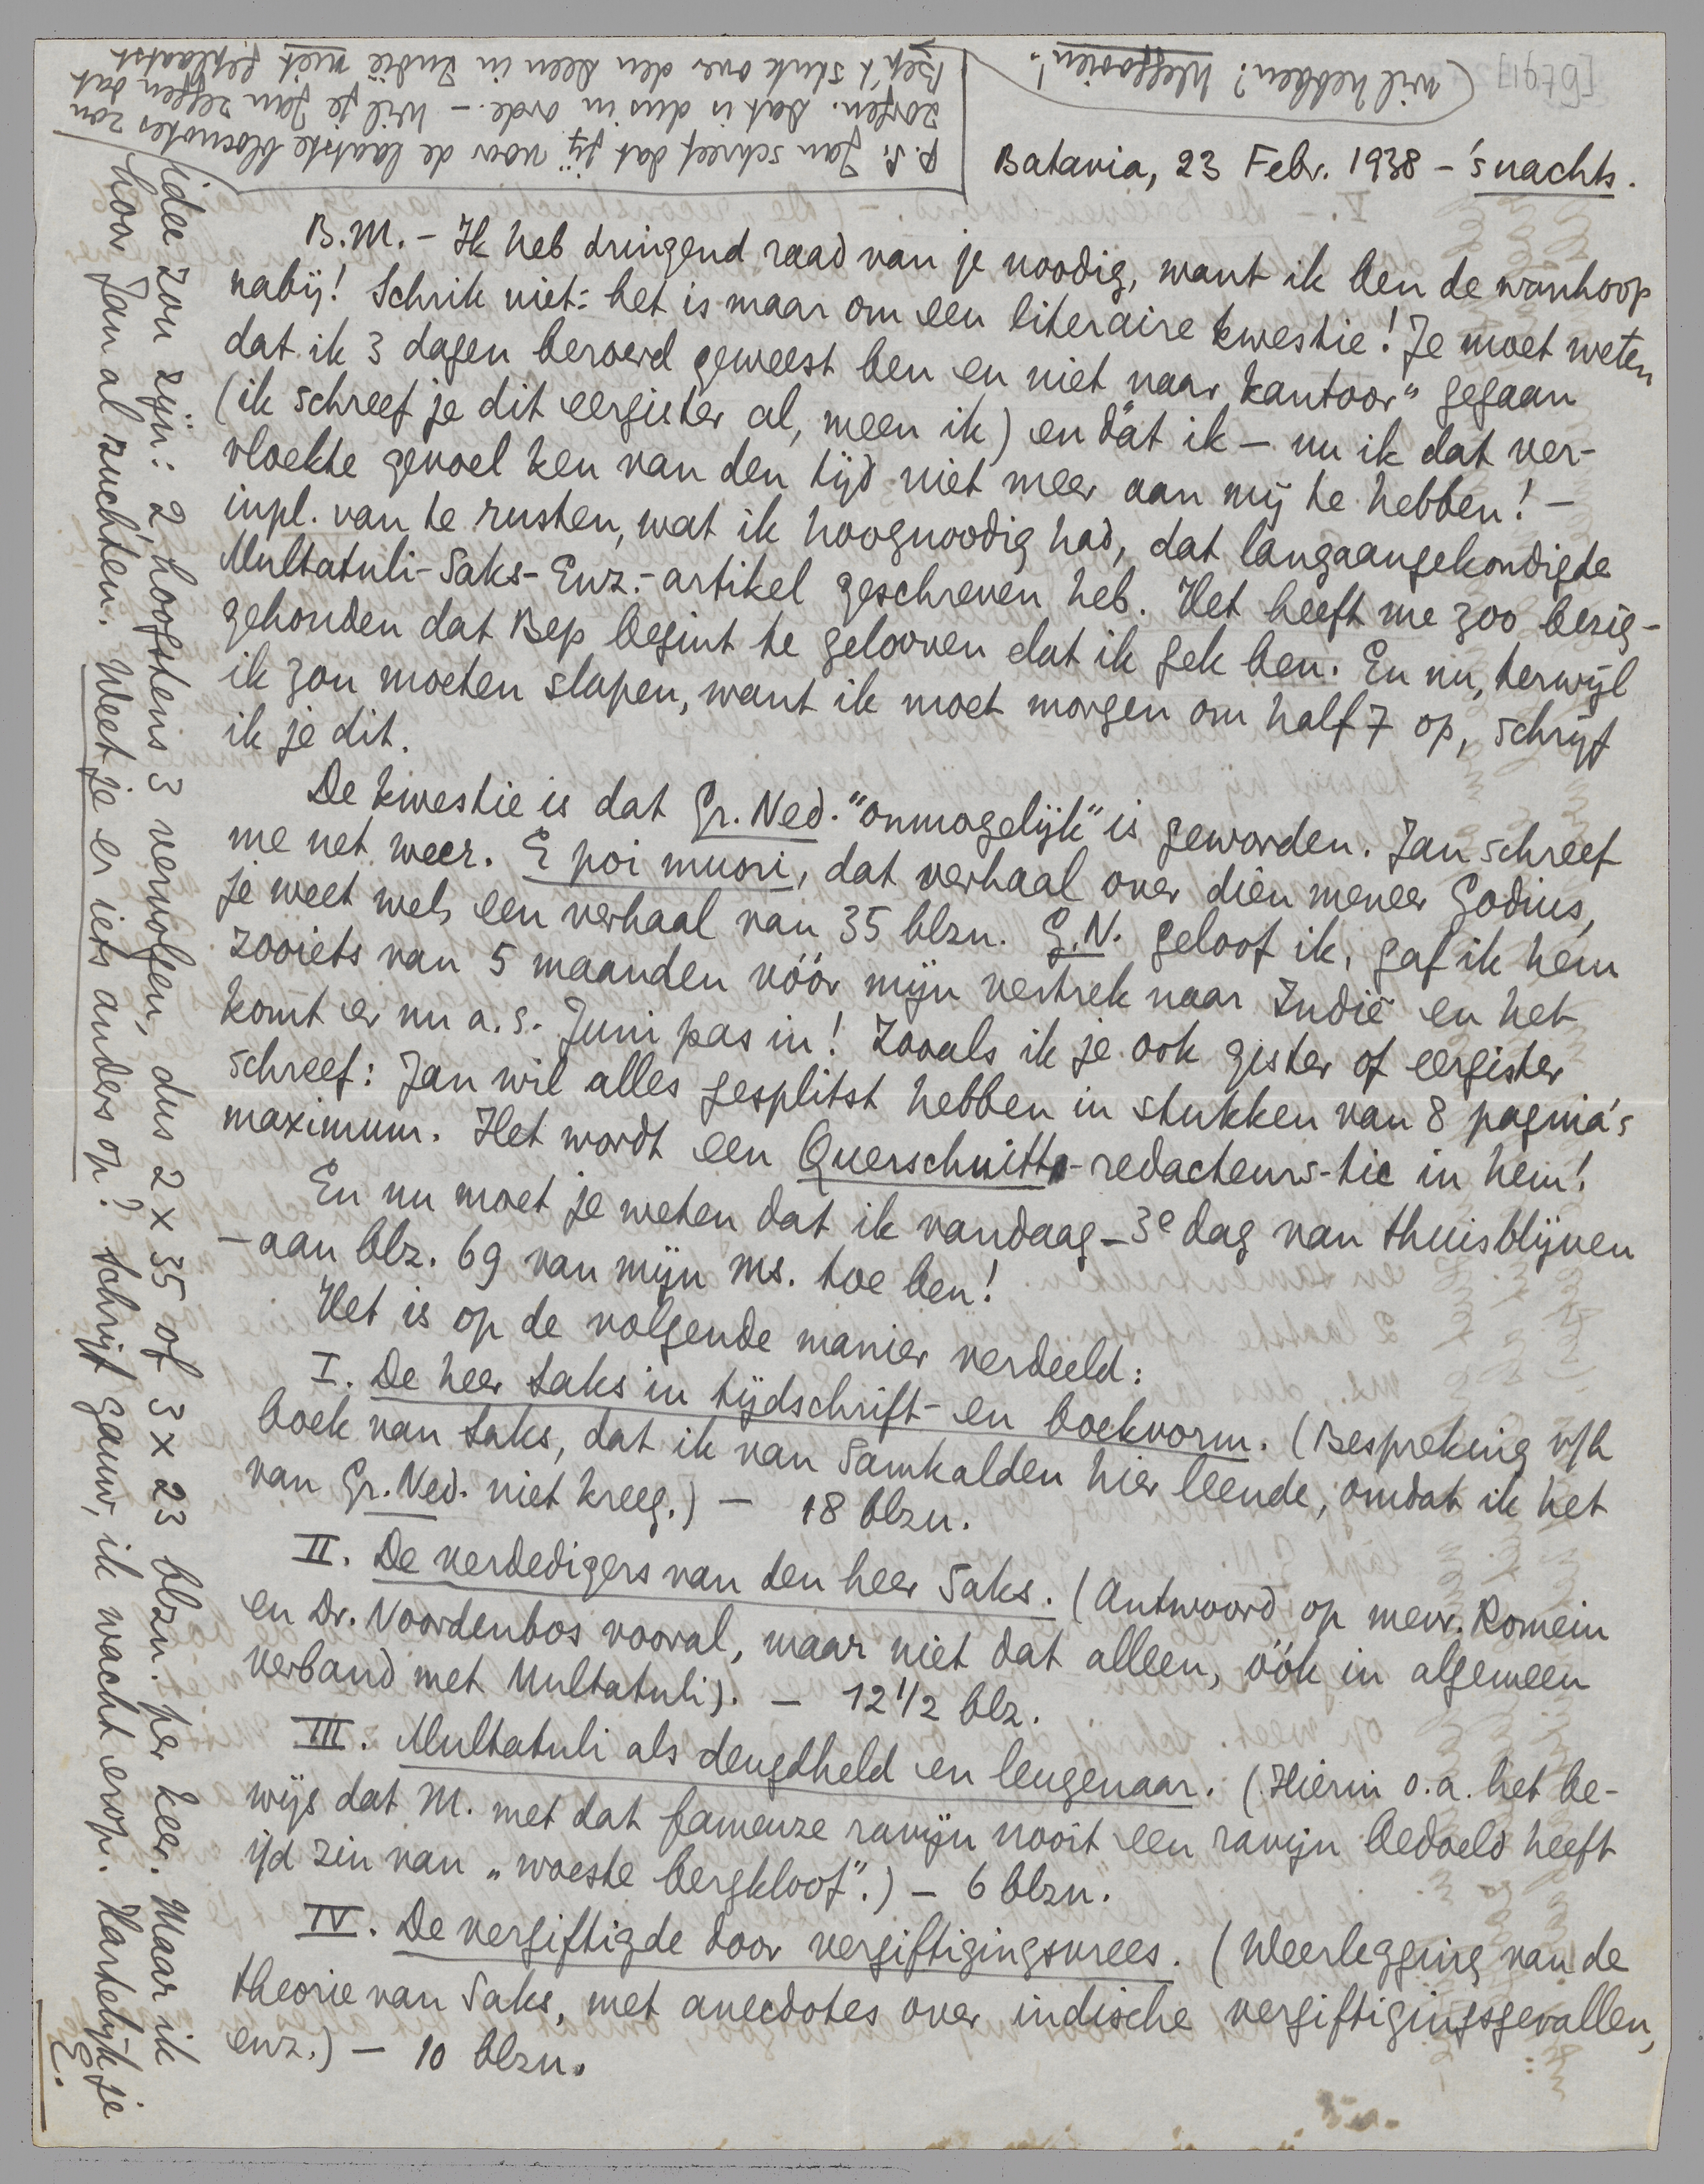 Batavia, 23 Febr. 1938 – 's nachts.
B.M. – Ik heb dringend raad van je noodig, want ik ben de wanhoop
nabij! Schrik niet: het is maar om een literaire kwestie! Je moet weten
dat ik 3 dagen beroerd geweest ben en niet naar „kantoor" gegaan
(ik schreef je dit eergister al, meen ik) en dàt ik – nu ik dat ver-
vloekte gevoel ken van den tijd niet meer aan mij te hebben! –
inpl. van te rusten, wat ik hoognoodig had, dat langaangekondigde
Multatuli-Saks-Enz.-artikel geschreven heb. Het heeft me zoo bezig-
gehouden dat Bep begint te gelooven dat ik gek ben. En nu, terwijl
ik zou moeten slapen, want ik moet morgen om half 7 op, schrijf
ik je dit.
De kwestie is dat Gr. Ned. "onmogelijk" is geworden. Jan schreef
me net weer. E poi muori, dat verhaal over dien meneer Godius,
je weet wel, een verhaal van 35 blzn. G.N. geloof ik, gaf ik hem
zooiets van 5 maanden vóór mijn vertrek naar Indië en het
komt er nu a.s. Juni pas in! Zooals ik je ook gister of eergister
schreef: Jan wil alles gesplitst hebben in stukken van 8 pagina's
maximum. Het wordt een Querschnitt-redacteurs-tic in hem!
En nu moet je weten dat ik vandaag – 3e dag van thuisblijven
– aan blz. 69 van mijn ms. toe ben!
Het is op de volgende manier verdeeld:
I. De heer Saks in tijdschrift- en boekvorm. (Bespreking v/h
boek van Saks, dat ik van Samkalden hier leende, omdat ik het
van Gr. Ned. niet kreeg.) – 18 blzn.
II. De verdedigers van den heer Saks. (Antwoord op mevr. Romein
en Dr. Noordenbos vooral, maar niet dat alleen, óók in algemeen
verband met Multatuli). – 12 1/2 blz.
III. Multatuli als deugdheld en leugenaar. (Hierin o.a. het be-
wijs dat M. met dat fameuze ravijn nooit een ravijn bedoeld heeft
i/d zin van „woeste bergkloof".) – 6 blzn.
IV. De vergiftigde door vergiftigingsvrees. (Weerlegging van de
theorie van Saks, met anecdotes over indische vergiftigingsgevallen,
enz.) – 10 blzn.
idee zou zijn: 2, hoogstens 3 vervolgen, dus 2 x 35 of 3 x 23 blzn. per keer. Maar ik
hoor Jan al zuchten. Weet je er iets anders op? Schrijf gauw, ik wacht erop. Hartelijk je
E.
P.S. Jan schreef dat jij voor de laatste blocnotes zou
zorgen. Dat is dus in orde. – Wil je Jan zeggen dat
Bep 't stuk over den Deen in Indië niet geplaatst
wil hebben? Weggooien!